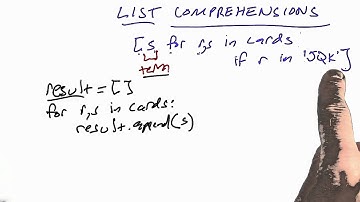 LIST COMPREHENSIONS
[s for r,s in cards
if r in 'JQK']
term
result = []
for r,s in cards:
result.append(s)